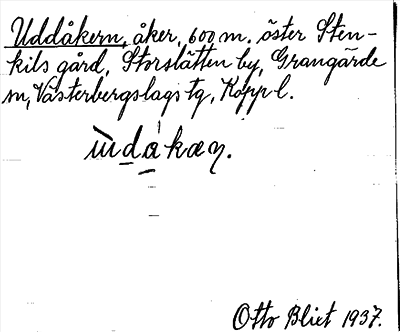 Uddåkern, åker, 600 m. öster Sten-
kils gård, Storslätten by, Grangärde
sn, Västerbergslags tg, Koppl.
ùdåkæɳ.
Otto Blixt 1937.